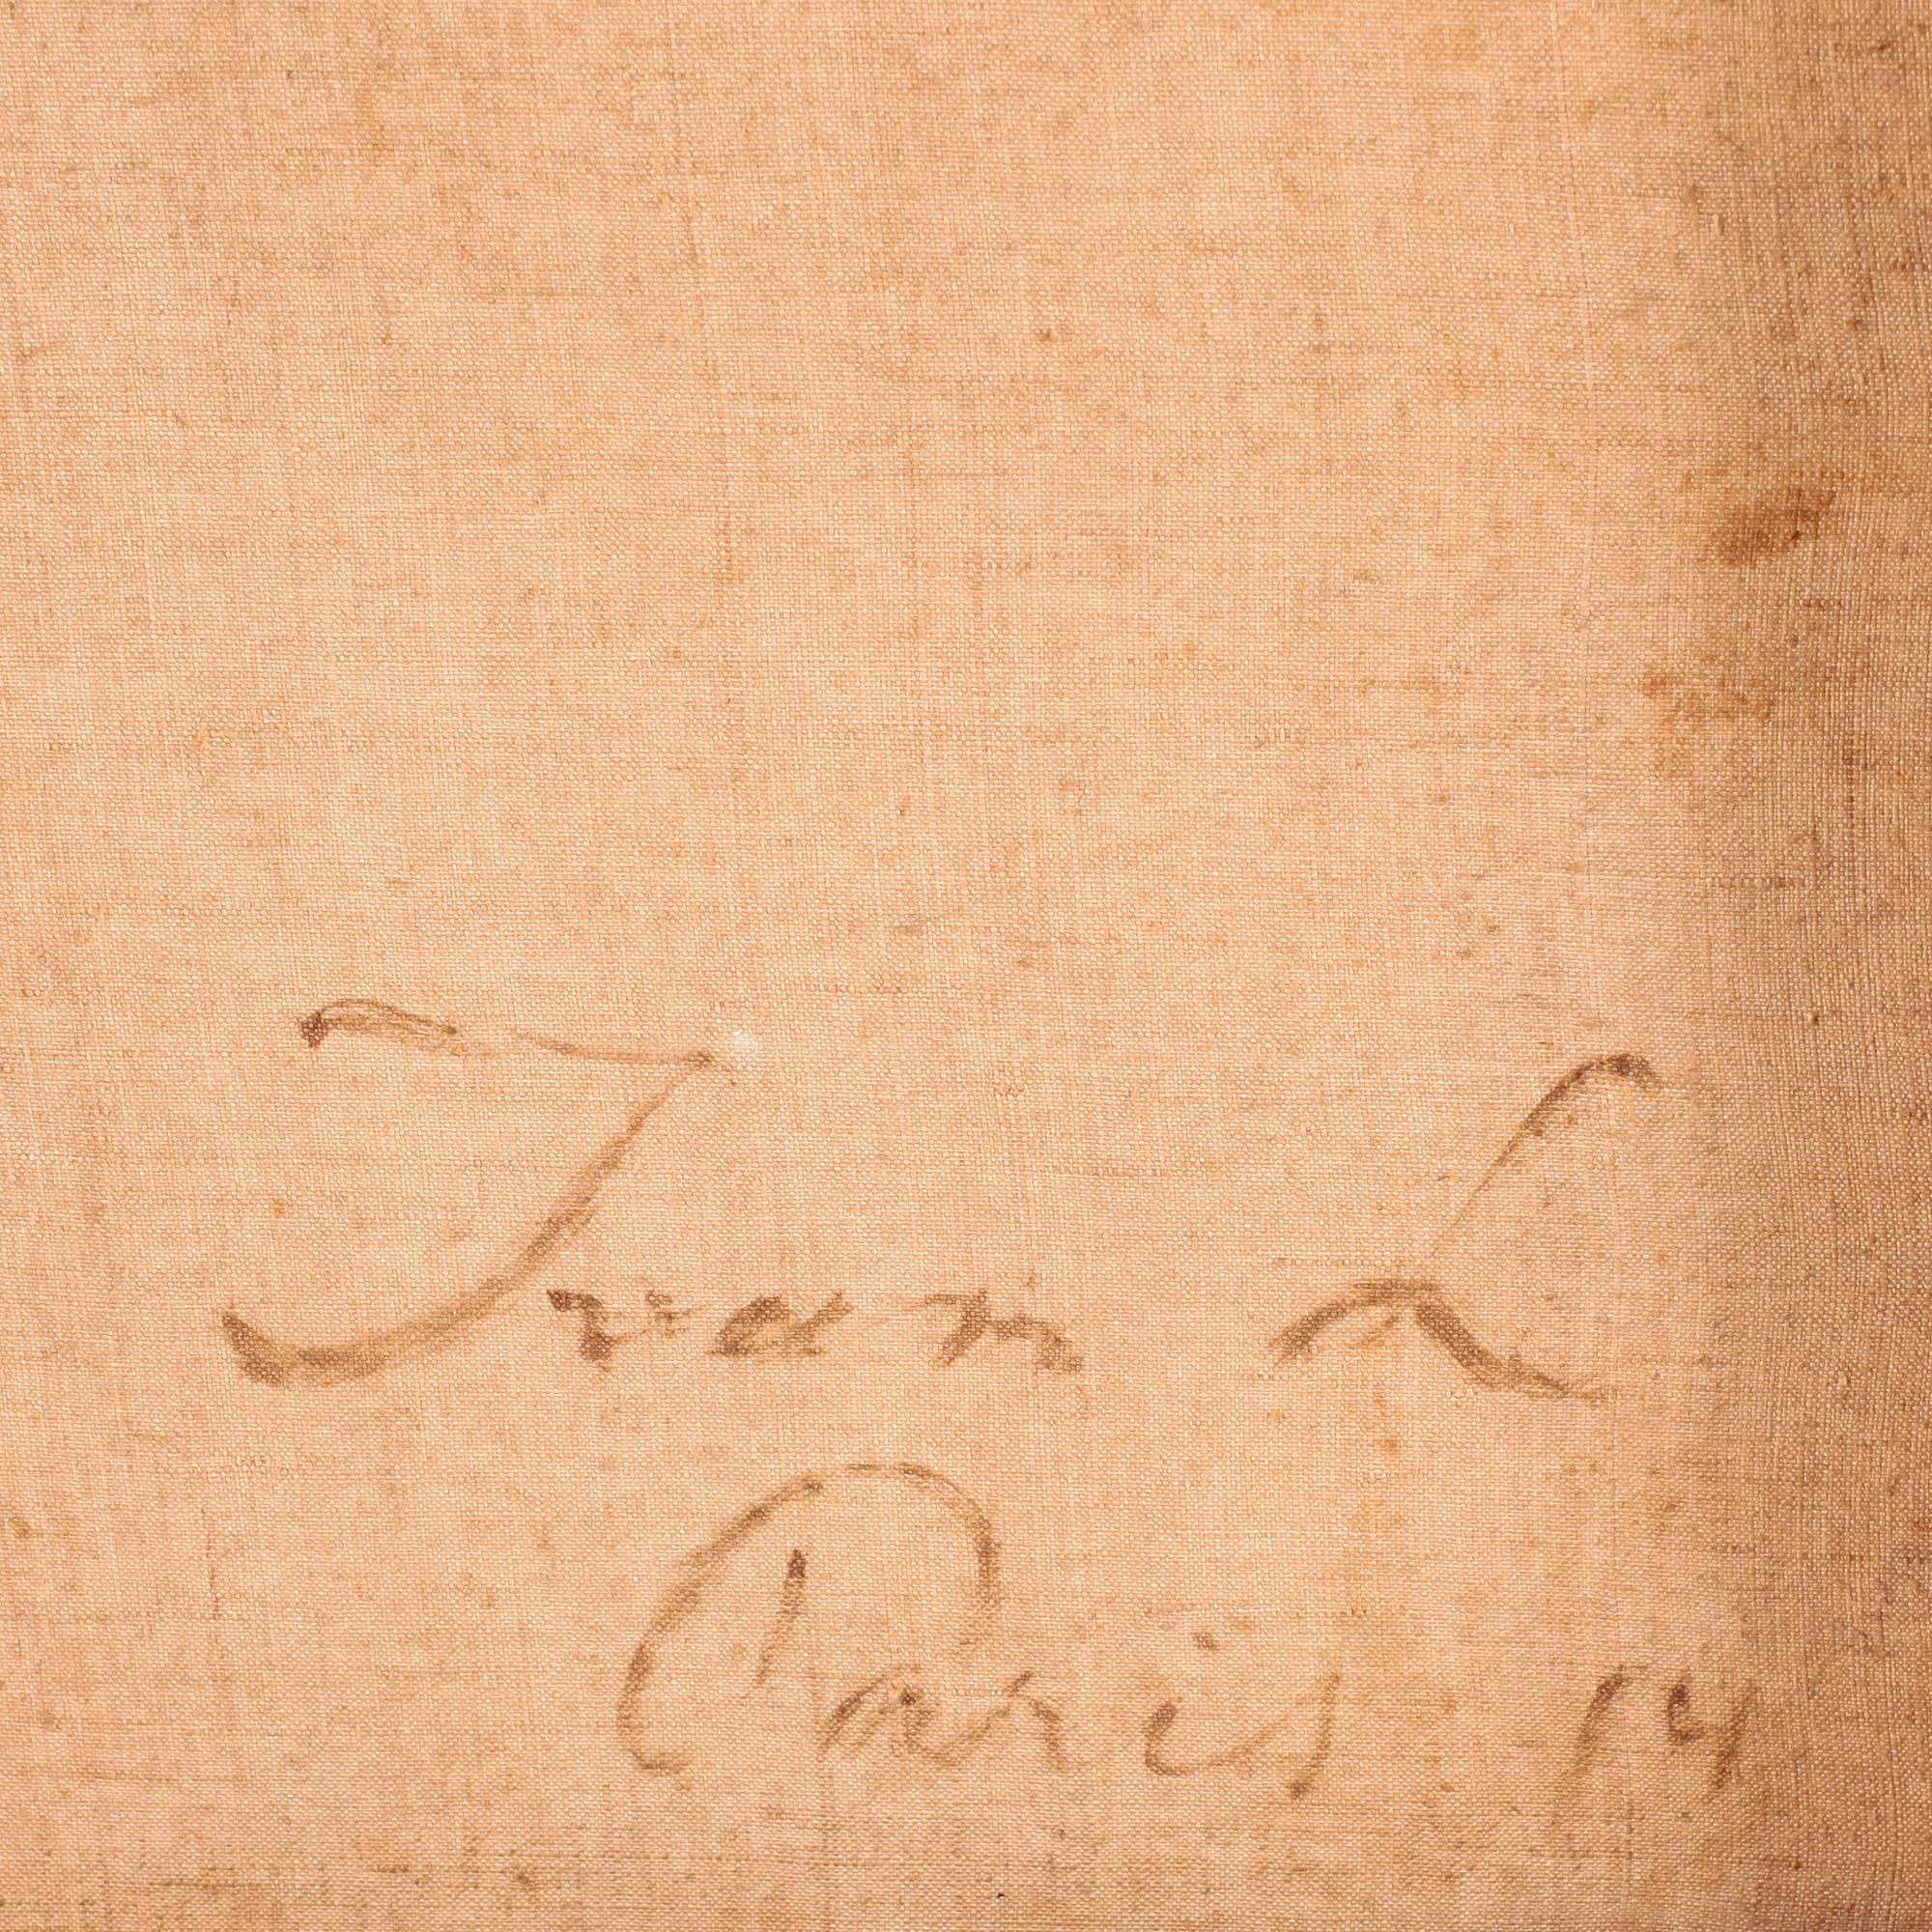 Ivan L
Paris 14